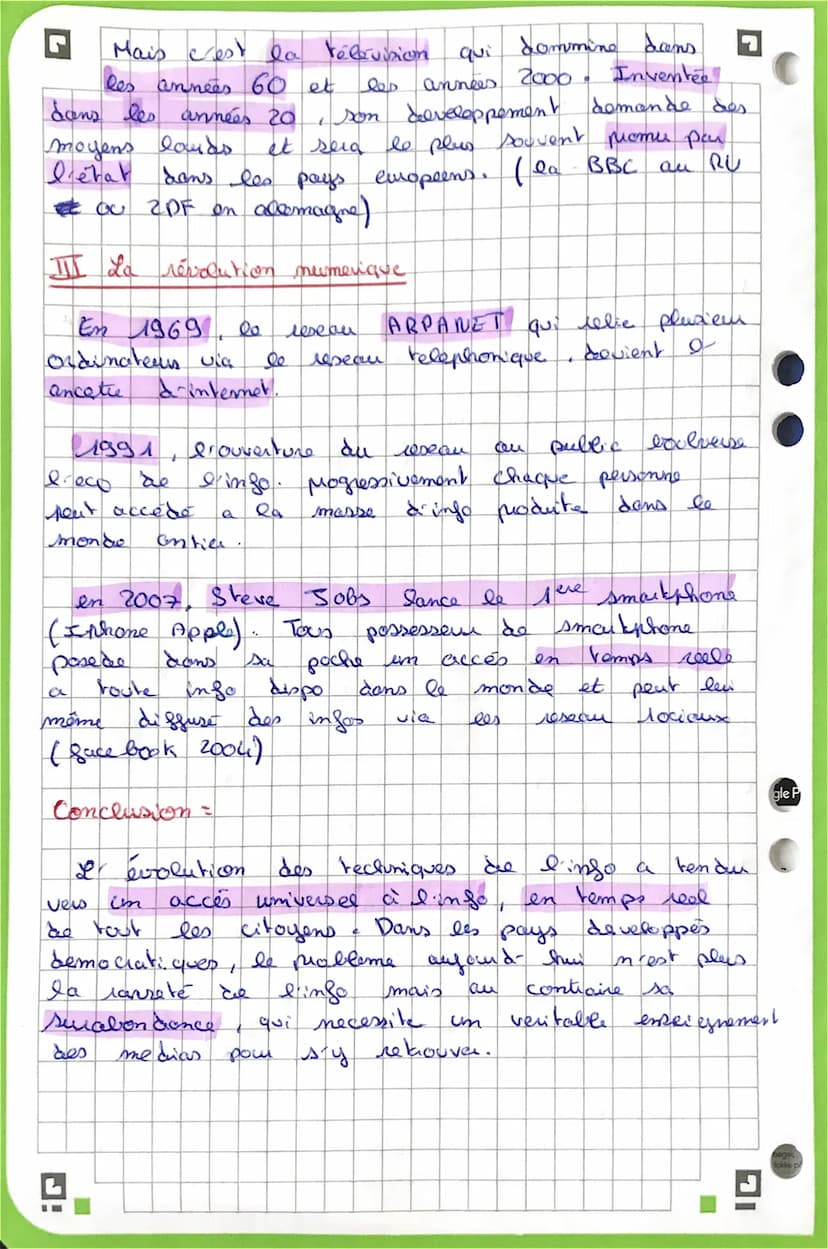 Mais c'est la télévision qui dommine dans
les années 60 et les années 2000. Inventée
dans les années 20, son developpement demande des
moyens lourds et sera le plus souvent promu par
l'état dans les pays européens. (la BBC au RU
ou ZDF en allemagne)
III La révolution numerique
En 1969, le reseau ARPANET qui relie plusieur
ordinateurs via le reseau telephonique, devient l'
ancetre d-internet.
1991, l'ouverture du reseau au public boulverse
l'eco de l'info. progressivement chaque personne
peut accédé a la masse d'info produite dans le
monde entier.
en 2007, Steve JOBS lance le 1ere smartphone
(Iphone Apple). Tous possesseur de smartphone
posede dans sa poche un accés en temps reele
a toute info dispo dans le monde et peut lui
même diffusé des infos via les reseau sociaux
(facebook 2004)
Conclusion =
L' évolution des techniques de l'info a tendu
vers un accés universel à l'info, en temps real
de tout les citoyens. Dans les pays developpés
democratiques, le probleme aujourd- hui n'est plus
la rareté de l'info mais au contraire sa
surabondance, qui necessite un veritable enseignement
des medias pour s'y retrouver.
gle P